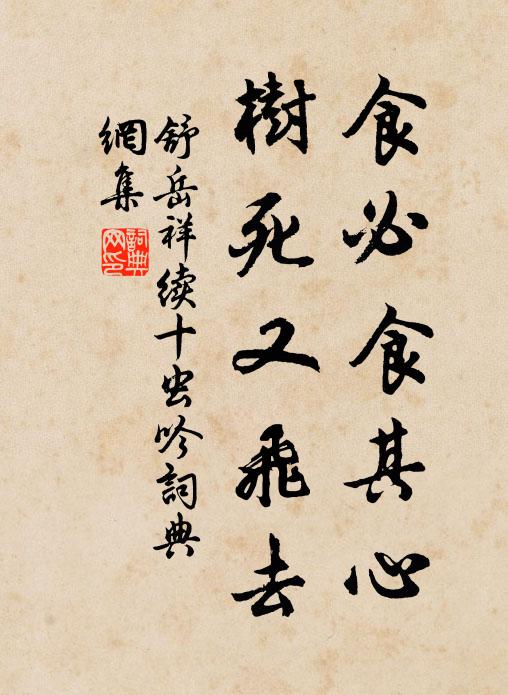 食必食其心
樹死又飛去
舒岳祥續十虫吟詞典
網集
詞典網印